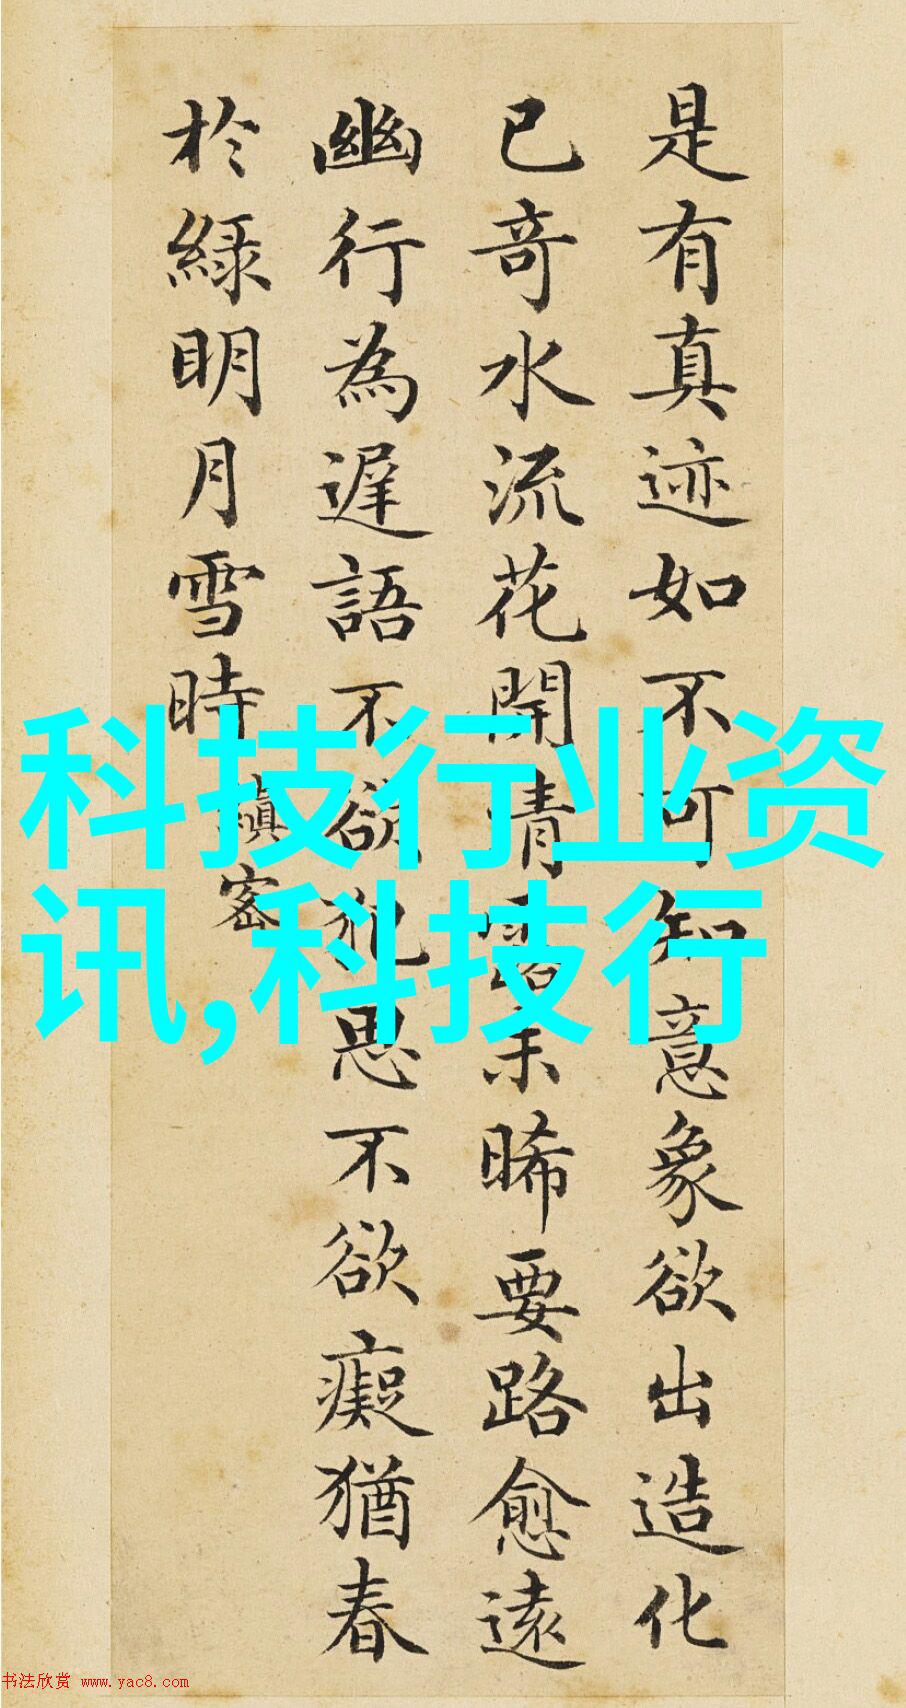 是有真迹如不可知意象欲出造化
已奇水流花開清露未晞要路愈遠
幽行為遲語不欲犯思不欲癡猶春
於綠明月雪時
縝密
科技行业资
讯,科技行
书法欣赏 www.yac8.com